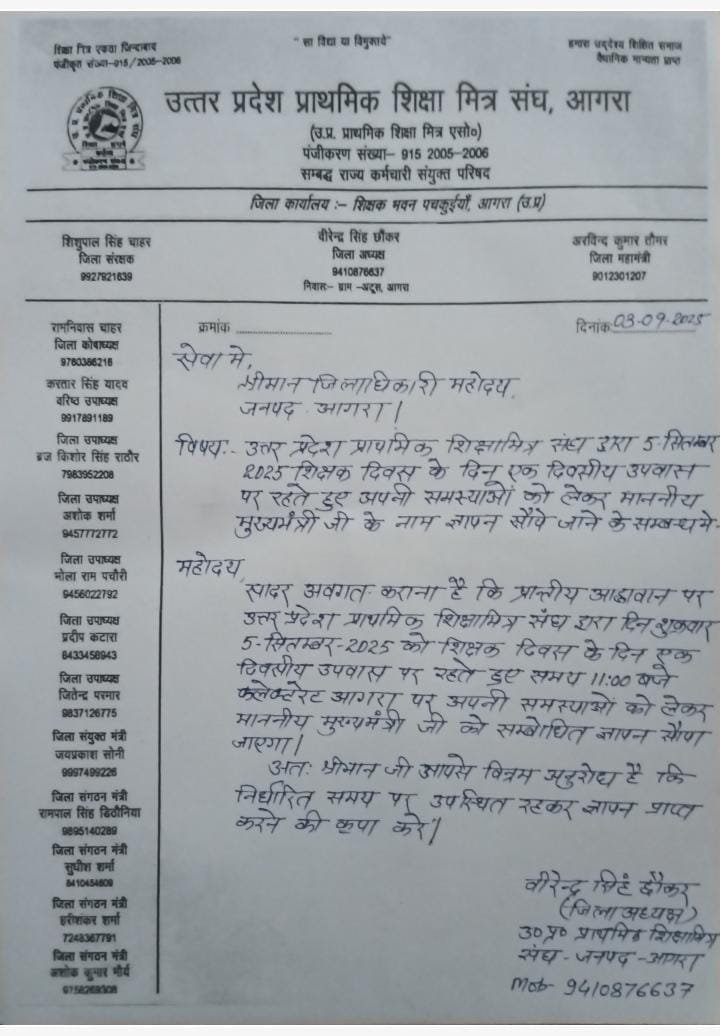 शिक्षा मित्र एकता जिन्दाबाद
पंजीकृत संख्या-915/2005-2006
" सा विद्या या विमुक्तये"
हमारा उद्देश्य शिक्षित समाज
वैधानिक मान्यता प्राप्त
उत्तर प्रदेश प्राथमिक शिक्षा मित्र संघ, आगरा
(उ.प्र. प्राथमिक शिक्षा मित्र एसो०)
पंजीकरण संख्या– 915 2005–2006
सम्बद्ध राज्य कर्मचारी संयुक्त परिषद
जिला कार्यालय :– शिक्षक भवन पचकुईयाँ, आगरा (उ.प्र)
शिशुपाल सिंह चाहर
जिला संरक्षक
9927921639
वीरेन्द्र सिंह छौंकर
जिला अध्यक्ष
9410876637
निवास:– ग्राम –अटूस, आगरा
अरविन्द कुमार तौमर
जिला महामंत्री
9012301207
रामनिवास चाहर
जिला कोषाध्यक्ष
9760386216
करतार सिंह यादव
वरिष्ठ उपाध्यक्ष
9917891189
जिला उपाध्यक्ष
ब्रज किशोर सिंह राठौर
7983952208
जिला उपाध्यक्ष
अशोक शर्मा
9457772772
जिला उपाध्यक्ष
भोला राम पचौरी
9456022792
जिला उपाध्यक्ष
प्रदीप कटारा
8433458943
जिला उपाध्यक्ष
जितेन्द्र परमार
9837126775
जिला संयुक्त मंत्री
जयप्रकाश सोनी
9997499226
जिला संगठन मंत्री
रामपाल सिंह डिठौनिया
9895140289
जिला संगठन मंत्री
सुधीश शर्मा
8410454609
जिला संगठन मंत्री
हरीशंकर शर्मा
7248367791
जिला संगठन मंत्री
अशोक कुमार मौर्य
9758269308
क्रमांक ........................
दिनांक 03-09-2025
सेवा मे,
श्रीमान जिलाधिकारी महोदय,
जनपद आगरा।
विषय:- उत्तर प्रदेश प्राथमिक शिक्षामित्र संघ द्वारा 5-सितम्बर
2025 शिक्षक दिवस के दिन एक दिवसीय उपवास
पर रहते हुए अपनी समस्याओं को लेकर माननीय
मुख्यमंत्री जी के नाम ज्ञापन सौंपे जाने के सम्बन्ध मे-
महोदय,
सादर अवगत कराना है कि प्रान्तीय आह्वावान पर
उत्तर प्रदेश प्राथमिक शिक्षामित्र संघ द्वारा दिन शुक्रवार
5-सितम्बर-2025 को शिक्षक दिवस के दिन एक
दिवसीय उपवास पर रहते हुए समय 11:00 बजे
कलेक्टेरेट आगरा पर अपनी समस्याओं को लेकर
माननीय मुख्यमंत्री जी को सम्बोधित ज्ञापन सौंपा
जाएगा।
अतः श्रीमान जी आपसे विन्रम अनुरोध है कि
निर्धारित समय पर उपस्थित रहकर ज्ञापन प्राप्त
करने की कृपा करे।
वीरेन्द्र सिंह छौंकर
(जिला अध्यक्ष)
उ० प्र० प्राथमिक शिक्षामित्र
संघ - जनपद - आगरा
Mob- 9410876637